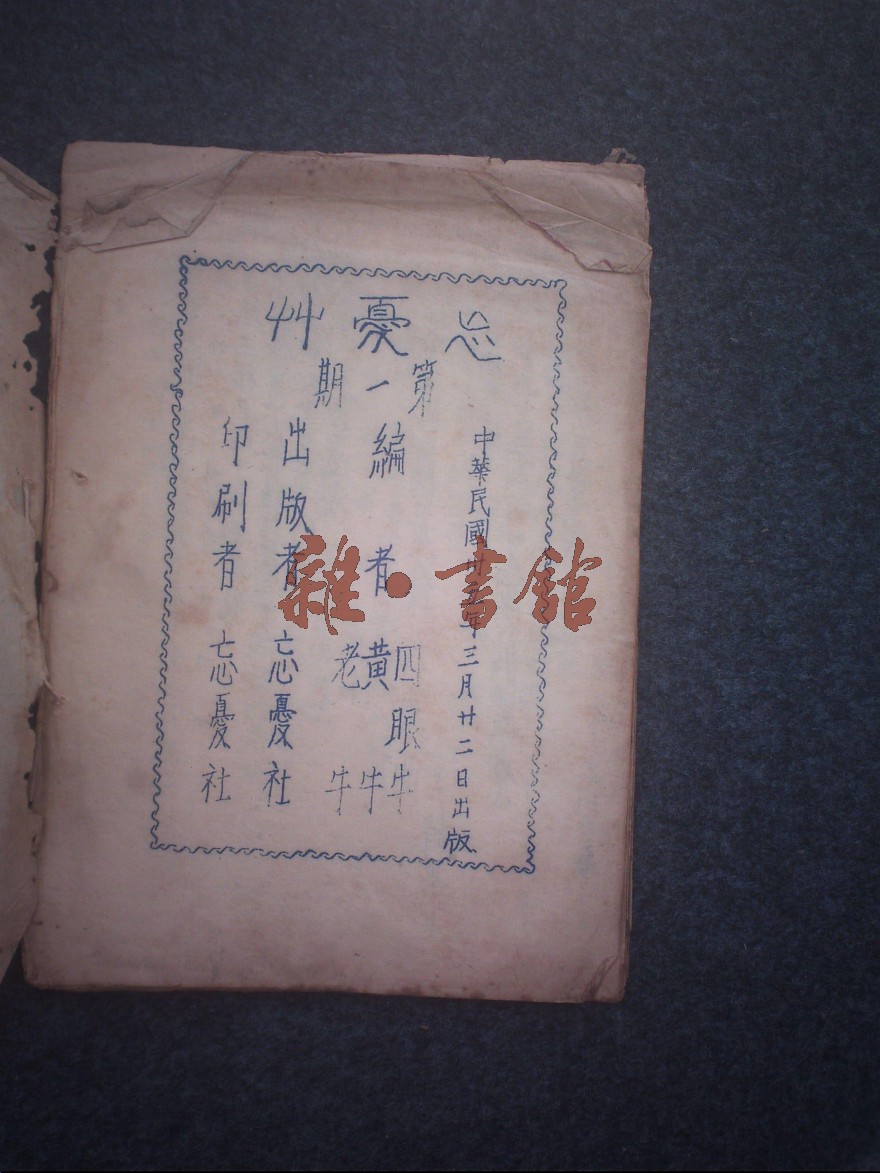 忘憂艸
第一期
中華民國卅五年三月廿二日出版
編者 四眼牛
黃牛
老牛
出版者 忘憂社
印刷者 忘憂社
雜·書館